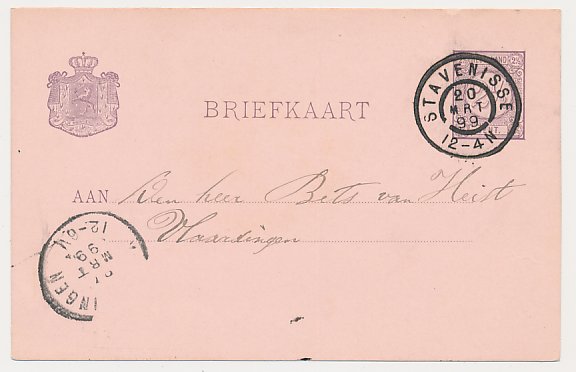 BRIEFKAART
STAVENISSE
20
MRT
99
12-4N
AAN Den heer Bets van Heist
Vlaardingen
INGEN
MRT
99
12-6N